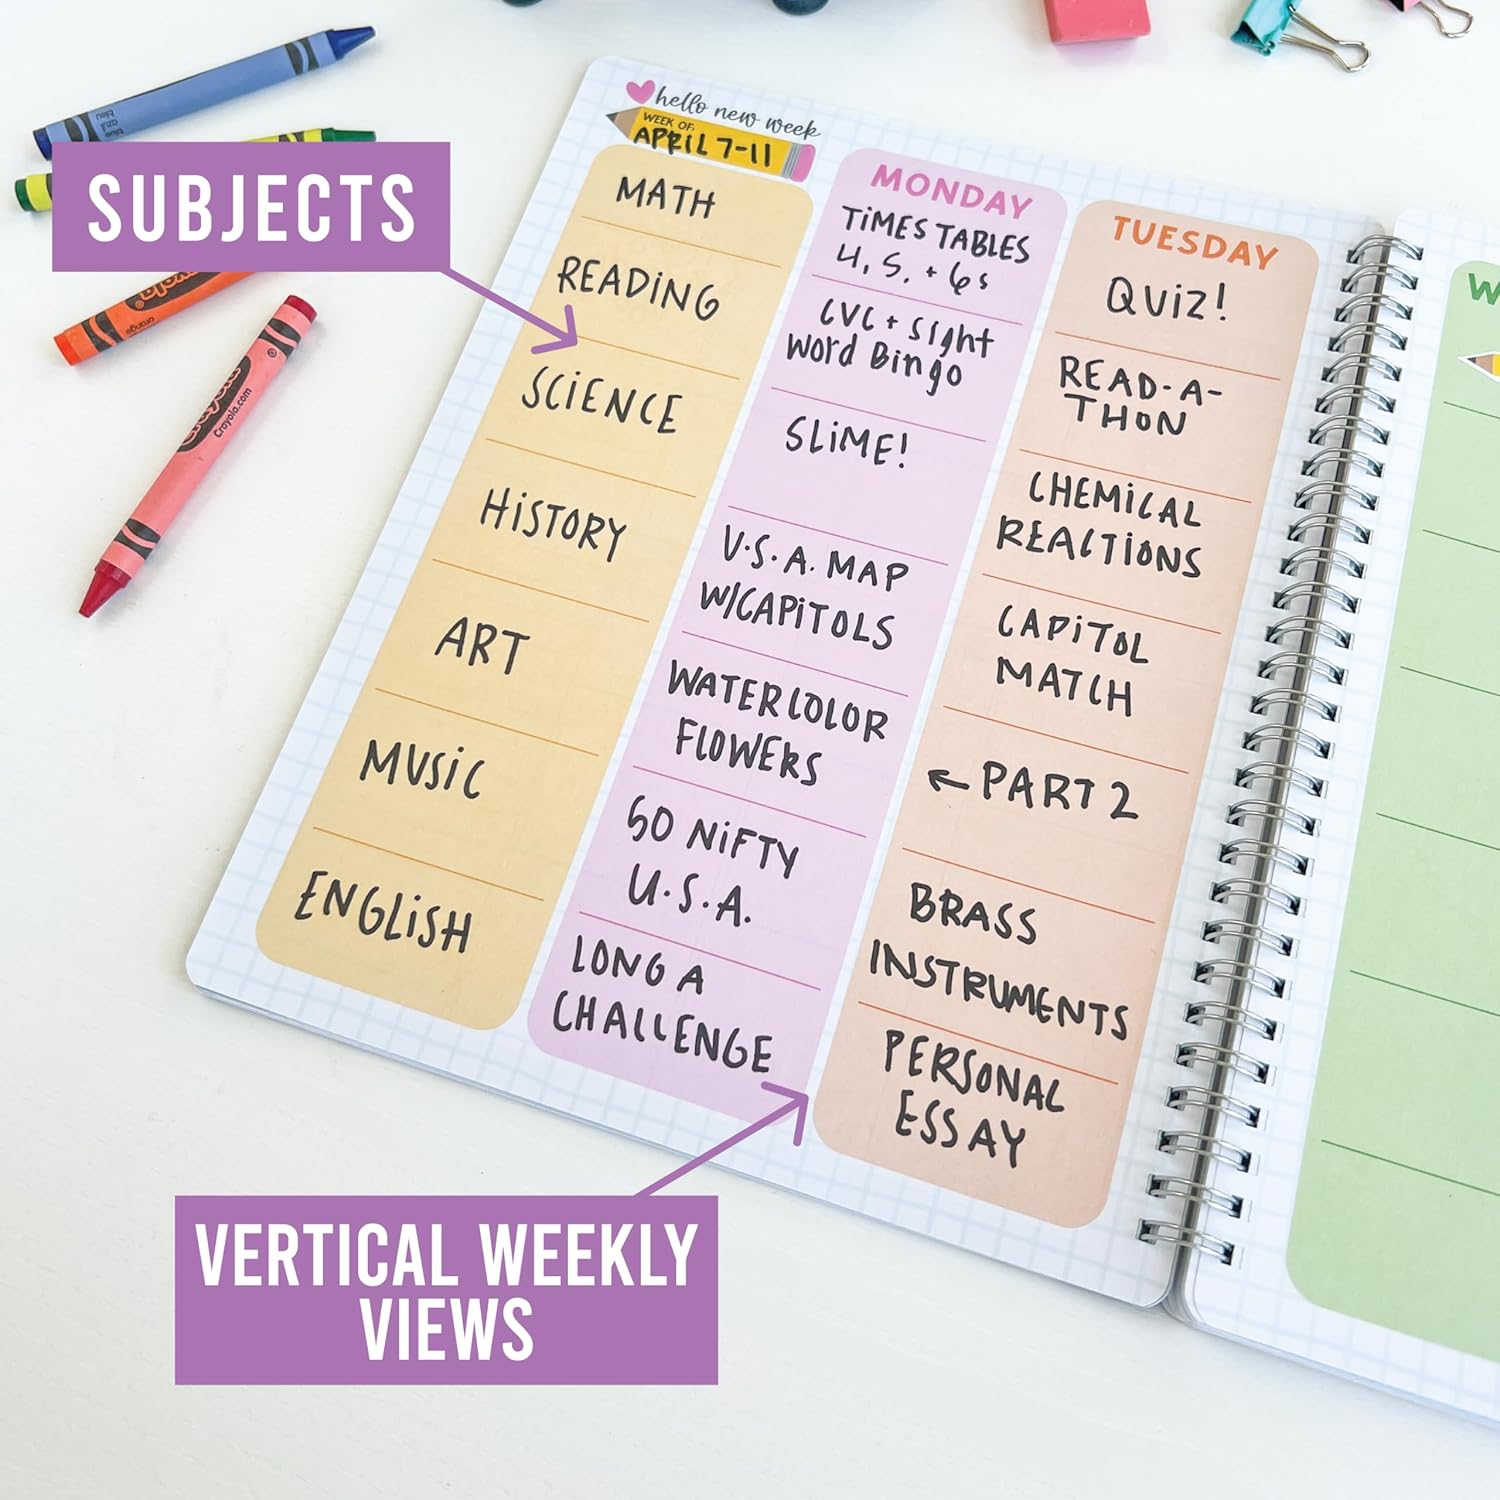 SUBJECTS
hello new week
WEEK OF:
APRIL 7-11
MATH
READING
SCIENCE
HISTORY
ART
MUSIC
ENGLISH
MONDAY
TIMES TABLES
4, 5, + 6s
CVC + Sight
Word Bingo
SLIME!
U.S.A. MAP
W/CAPITOLS
WATERCOLOR
FLOWERS
50 NIFTY
U.S.A.
LONG A
CHALLENGE
TUESDAY
QUIZ!
READ-A-
THON
CHEMICAL
REACTIONS
CAPITOL
MATCH
← PART 2
BRASS
INSTRUMENTS
PERSONAL
ESSAY
W
VERTICAL WEEKLY
VIEWS
Crayola
orange
Crayola
Crayola.com